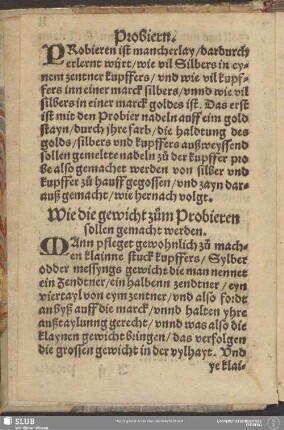 Probiern.
PRobieren ist mancherlay/dardurch
erlernt würt/wie vil Silbers in ey-
nem zentner kupffers/vnd wie vil kupf-
fers inn einer marck silbers/vnnd wie vil
silbers in einer marck goldes ist. Das erst
ist mit den Probier nadeln auff eim gold
stayn/durch jhre farb/die haldtung des
golds/silbers vnd kupffers außweyssend
sollen gemeltte nadeln zů der kupffer pro
be also gemachet werden von silber vnd
kupffer zů hauff gegossen/vnd zayn dar-
auß gemacht/wie hernach volgt.
Wie die gewicht zům Probieren
sollen gemacht werden.
MAnn pfleget gewohnlich zů mach-
en klainne stuck kupffers/Sylber
odder messyngs gewicht die man nennet
ein Zendtner/ein halbenn zendtner/eyn
viertayl von eym zentner/vnd also fordt
an byß auff die marck/vnnd halten yhre
außtaylunng gerecht/vnnd was also die
klaynen gewicht bringen/das verfolgen
die grossen gewicht in der vylhayt. Vnd
ye klai-
SLUB